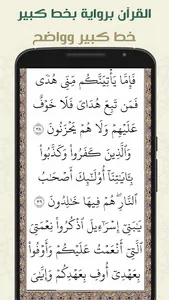 القرآن برواية بخط كبير
خط كبير وواضح
فَإِمَّا يَأْتِيَنَّكُم مِّنِّي هُدًى
فَمَن تَبِعَ هُدَايَ فَلَا خَوْفٌ
عَلَيْهِمْ وَلَا هُمْ يَحْزَنُونَ ٣٨
وَالَّذِينَ كَفَرُوا وَكَذَّبُوا
بِآيَاتِنَا أُولَٰئِكَ أَصْحَابُ
النَّارِ هُمْ فِيهَا خَالِدُونَ ٣٩
يَٰبَنِي إِسْرَٰٓءِيلَ اذْكُرُوا نِعْمَتِيَ
الَّتِي أَنْعَمْتُ عَلَيْكُمْ وَأَوْفُوا
بِعَهْدِي أُوفِ بِعَهْدِكُمْ وَإِيَّٰيَ